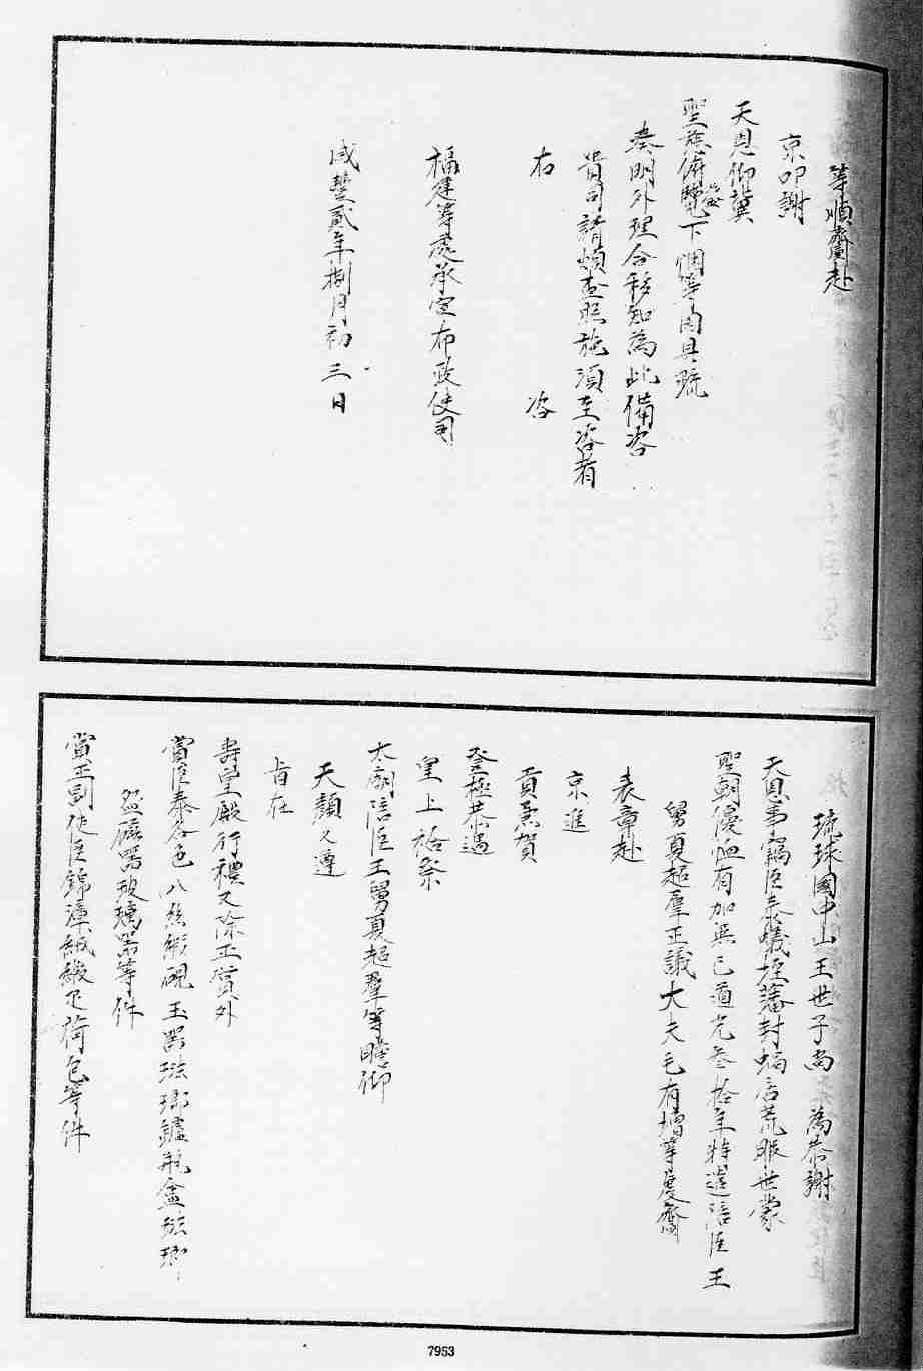 等順齎赴
京叩謝
天恩仰冀
聖慈俯覽下悃等因具疏
奏明外理合移知為此備咨
貴司請煩查照施須至咨者
右　咨
福建等處承宣布政使司
咸豐貳年捌月初三日
琉球國中山王世子尚　為恭謝
天恩事竊臣泰蟻垤藩封蝸居荒服世蒙
聖朝優恤有加無已道光叁拾年特遣陪臣王
舅夏超羣正議大夫毛有增等虔齎
表章赴
京進
貢兼賀
登極恭遇
皇上祫祭
太廟陪臣王舅夏超羣等瞻仰
天顏又遵
旨在
壽皇殿行禮又除正賞外
賞臣泰各色八絲緞硯玉器琺瑯鑪瓶盒琺瑯
盌磁器玻璃器等件
賞正副使臣錦漳絨緞疋荷包等件
7953